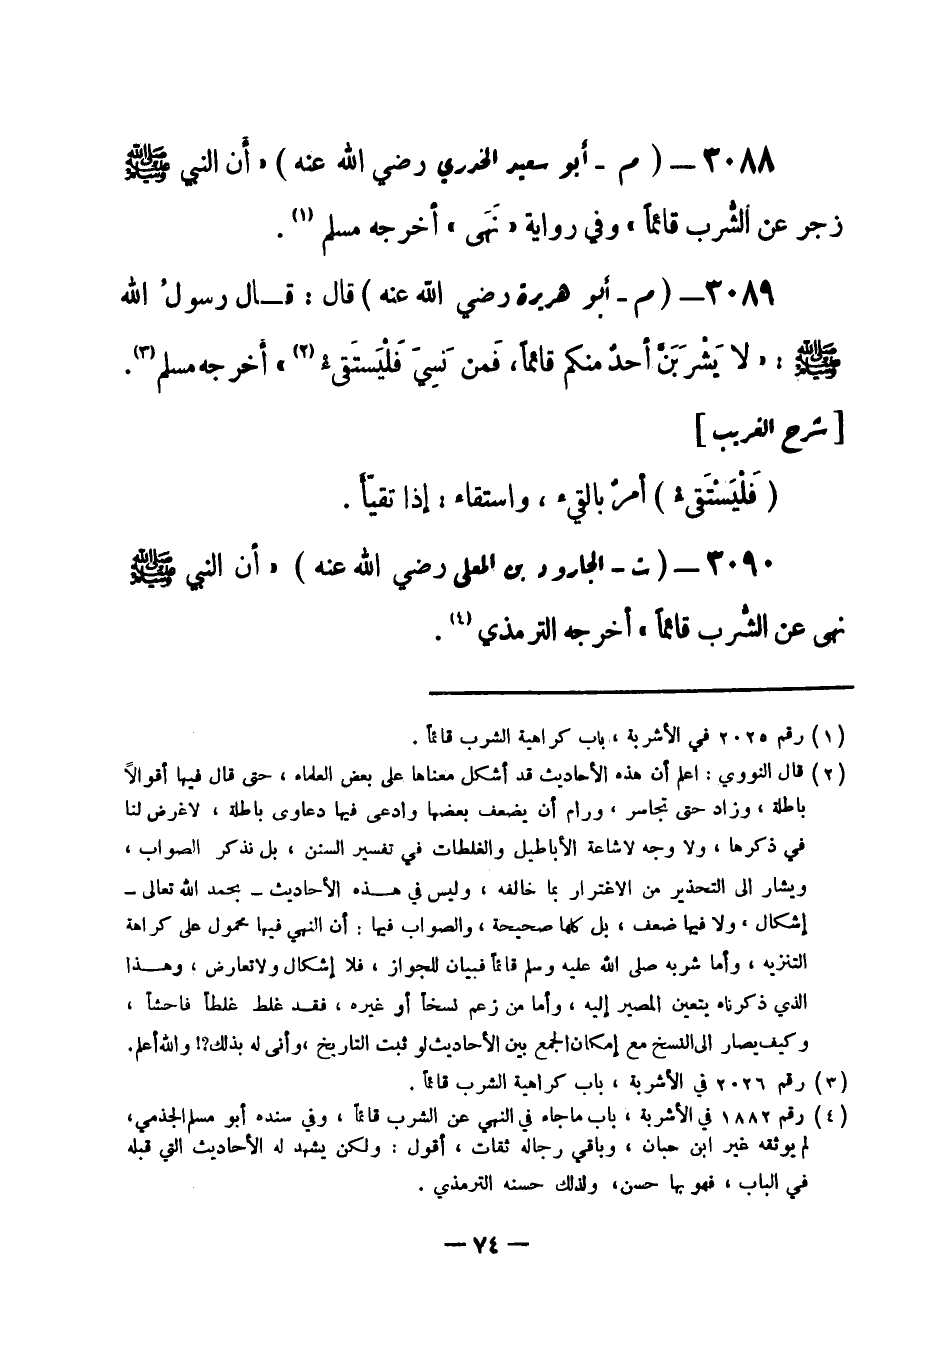 ٣٠٨٨ – ( م - أبو سعيد الخدري رضي الله عنه ) « أن النبي ﷺ
زجر عن الشُّرب قائماً » وفي رواية « نَهَى » أخرجه مسلم (١) .
٣٠٨٩ – ( م - أبو هريرة رضي الله عنه ) قال : قـــال رسولُ الله
ﷺ : « لا يَشْرَبَنَّ أحدٌ منكم قائماً، فَمن نَسِيَ فَلْيَستَقىءْ (٢) » أخرجه مسلم (٣) .
[ شرح الغريب ]
( فَلْيَسْتَقىءْ ) أمرٌ بالقيء ، واستقاء : إذا تقيّأ .
٣٠٩٠ – ( ت - الجارود بن المعلى رضي الله عنه ) « أن النبي ﷺ
نهى عن الشُّرب قائماً » أخرجه الترمذي (٤) .
(١) رقم ٢٠٢٥ في الأشربة ، باب كراهية الشرب قائماً .
(٢) قال النووي : اعلم أن هذه الأحاديث قد أشكل معناها على بعض العلماء ، حتى قال فيها أقوالاً
باطلة ، وزاد حتى تجاسر ، ورام أن يضعف بعضها وادعى فيها دعاوى باطلة ، لاغرض لنا
في ذكرها ، ولا وجه لاشاعة الأباطيل والغلطات في تفسير السنن ، بل نذكر الصواب ،
ويشار الى التحذير من الاغترار بما خالفه ، وليس في هـــذه الأحاديث – بحمد الله تعالى –
إشكال ، ولا فيها ضعف ، بل كلها صحيحة ، والصواب فيها : أن النهي فيها محمول على كراهة
التنزيه ، وأما شربه صلى الله عليه وسلم قائماً فبيان للجواز ، فلا إشكال ولاتعارض ، وهـــذا
الذي ذكرناه يتعين المصير إليه ، وأما من زعم نسخاً أو غيره ، فقـد غلط غلطاً فاحشاً ،
وكيف يصار الى النسخ مع إمكان الجمع بين الأحاديث لو ثبت التاريخ ، وأنى له بذلك؟! والله أعلم.
(٣) رقم ٢٠٢٦ في الأشربة ، باب كراهية الشرب قائماً .
(٤) رقم ١٨٨٢ في الأشربة ، باب ماجاء في النهي عن الشرب قائماً ، وفي سنده أبو مسلم الجذمي،
لم يوثقه غير ابن حبان ، وباقي رجاله ثقات ، أقول : ولكن يشهد له الأحاديث التي قبله
في الباب ، فهو بها حسن، ولذلك حسنه الترمذي .
– ٧٤ –